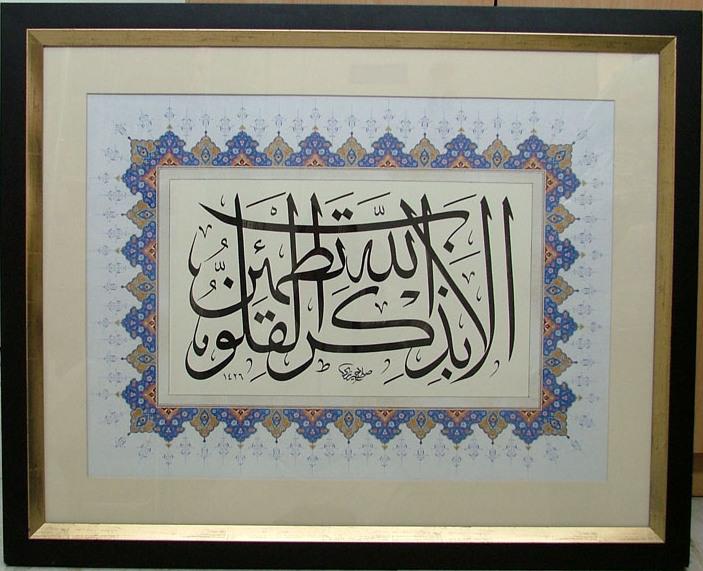 الا بذكر الله تطمئن القلوب
١٤٢٦